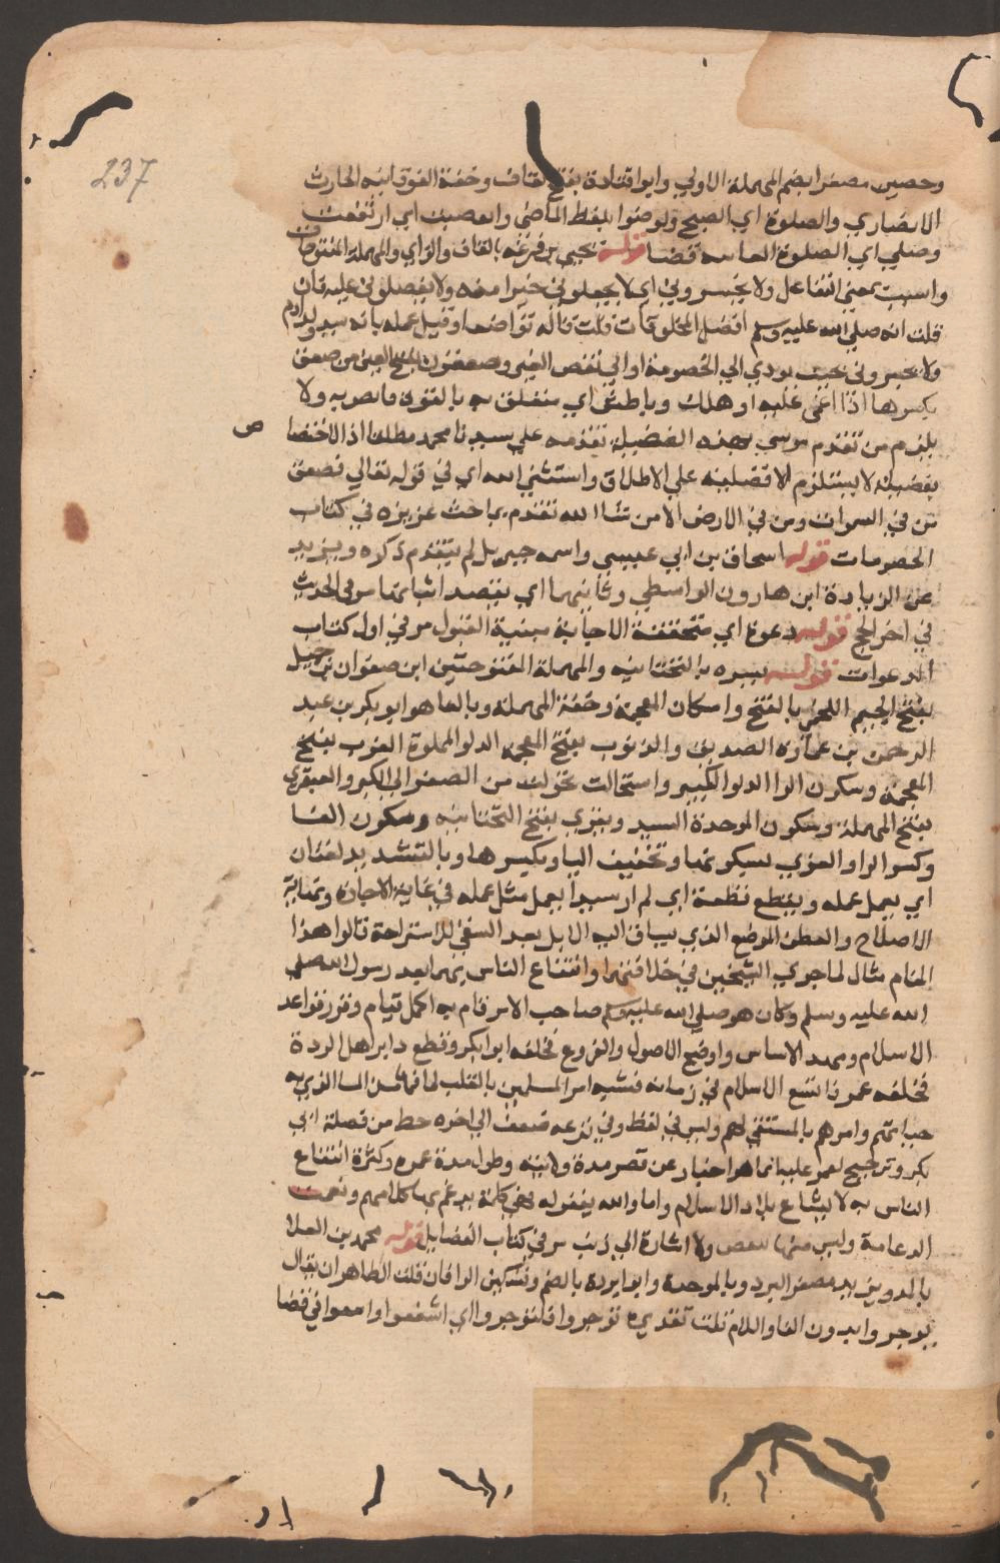 237
وحصين مصغرا بضم المهملة الاولي وابو قتادة بفتح القاف وخفة الفوقانيه الحارث
الانصاري والصلوة اي الصبح ولو ضوا بلفظ الماضي وابيضت اي ارتفعت
وصلي اي الصلوة الفايته قضا قوله يحيي بن قزعه بالقاف والزاي والمهملة المفتوحات
واستب بمعني التفاعل ولا تخيروني اي لا تجعلوني خيرا منه ولا تفضلوني عليه فان
قلت انه صلي الله عليه وسلم افضل المخلوقات قلت قاله تواضعا او قبل علمه بانه سيد ولد ادم
ولا تخيروني بحيث يودي الي الخصومة او الي نقص الغير ويصعقون بفتح العين من صعق
بكسرها اذا اغمي عليه او هلك وباطش اي متعلق به بالقوه قابض بيده ولا
يلزم من تقدم موسي بهذه الفضيلة تقدمه علي سيدنا محمد مطلقا اذ الاختصا ص
بفضيلة لا يستلزم الافضلية علي الاطلاق واستثني الله اي في قوله تعالي فصعق
من في السموات ومن في الارض الا من شا الله تقدم مباحث غزيره في كتاب
الخصومات قوله اسحاق بن ابي عيسي واسمه جبريل لم يتقدم ذكره ويزيد
من الزيادة ابن هارون الواسطي وياتيهما اي يقصد اتيانها مر في الحديث
في اخر الحج قوله دعوة اي متحققة الاجابة متيقنة القبول مر في اول كتاب
الدعوات قوله يسره بالتحتانيه والمهملة المفتوحتين ابن صفوان بن جميل
بفتح الجيم اللخمي بالفتح واسكان المعجمة وخفة المهملة وبالفا هو ابو بكر بن عبد
الرحمن بن عماره الصديق والذنوب بفتح المعجمه الدلو المملوة الغرب بفتح
المعجمة وسكون الرا الدلو الكبير واستحالت تحولت من الصغر الي الكبر والعبقري
بفتح المهملة وسكون الموحدة السيد ويفري بفتح التحتانيه وسكون الفا
وكسر الرا والفري بسكونها وتخفيف اليا وبكسرها وبالتشديد لغتان
اي يعمل عمله ويقطع قطعة اي لم ار سيدا يعمل مثل عمله في غاية الاجادة ونهاية
الاصلاح والعطن الموضع الذي يساق اليه الابل بعد السقي للاستراحة قالوا هذا
المنام مثال لما جري للشيخين في خلافتهما وانتفاع الناس بهما بعد رسول الله صلي
الله عليه وسلم وكان هو صلي الله عليه وسلم صاحب الامر قام به اكمل قيام وقرر قواعد
الاسلام ومهد الاساس واوضح الاصول والفروع فخلفه ابو بكر وقطع دابر اهل الردة
فخلفه عمر فاتسع الاسلام في زمانه فشبه امر المسلمين بالقليب لما فيها من الما الذي به
حياتهم وامرهم بالمستقي لهم وليس في لفظ وفي نزعه ضعف الي اخره حط من فضله ابي
بكر وترجيح لعمر عليه انما هو اخبار عن قصر مدة ولايته وطول مدة عمر وكثرة انتفاع
الناس به لاتساع بلاد الاسلام واما والله يغفر له فهي كلمة يدعم بها كلامهم ونعمت
الدعامة وليس فيها تنقيص ولا اشارة الي ذنب مر في كتاب الفضايل قوله محمد بن العلا
بالمد وبريد مصغر البرد وبالموحدة وابو بردة بالضم وتسكين الرا فان قلت الظاهر ان يقال
توجروا بدون الفا واللام قلت تقديره توجروا فلتوجروا اي اشفعوا واسعوا في قضا